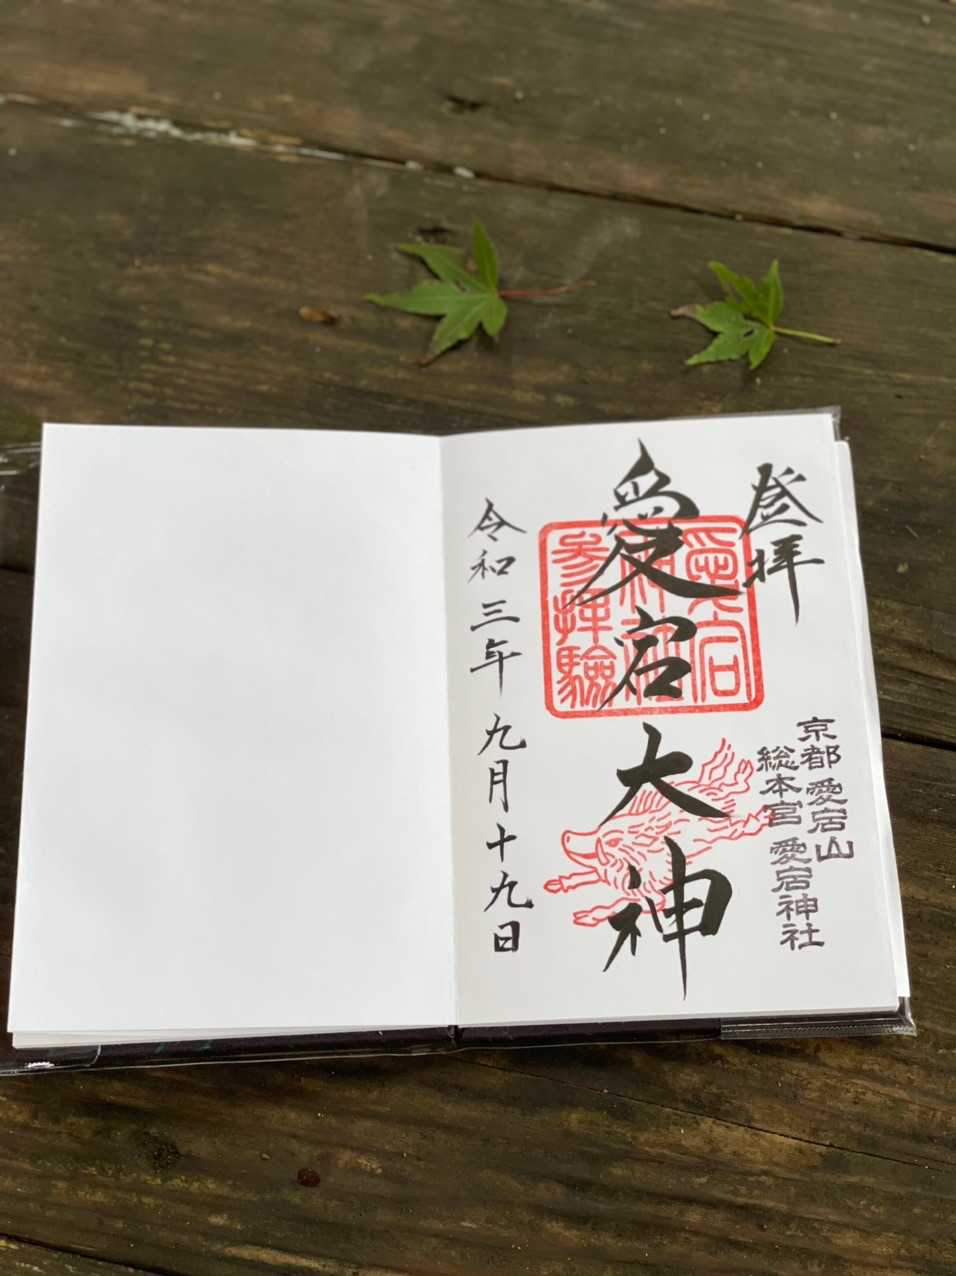 登拝
京都 愛宕山
総本宮 愛宕神社
愛宕大神
愛宕
神社
参拝験
令和三年九月十九日